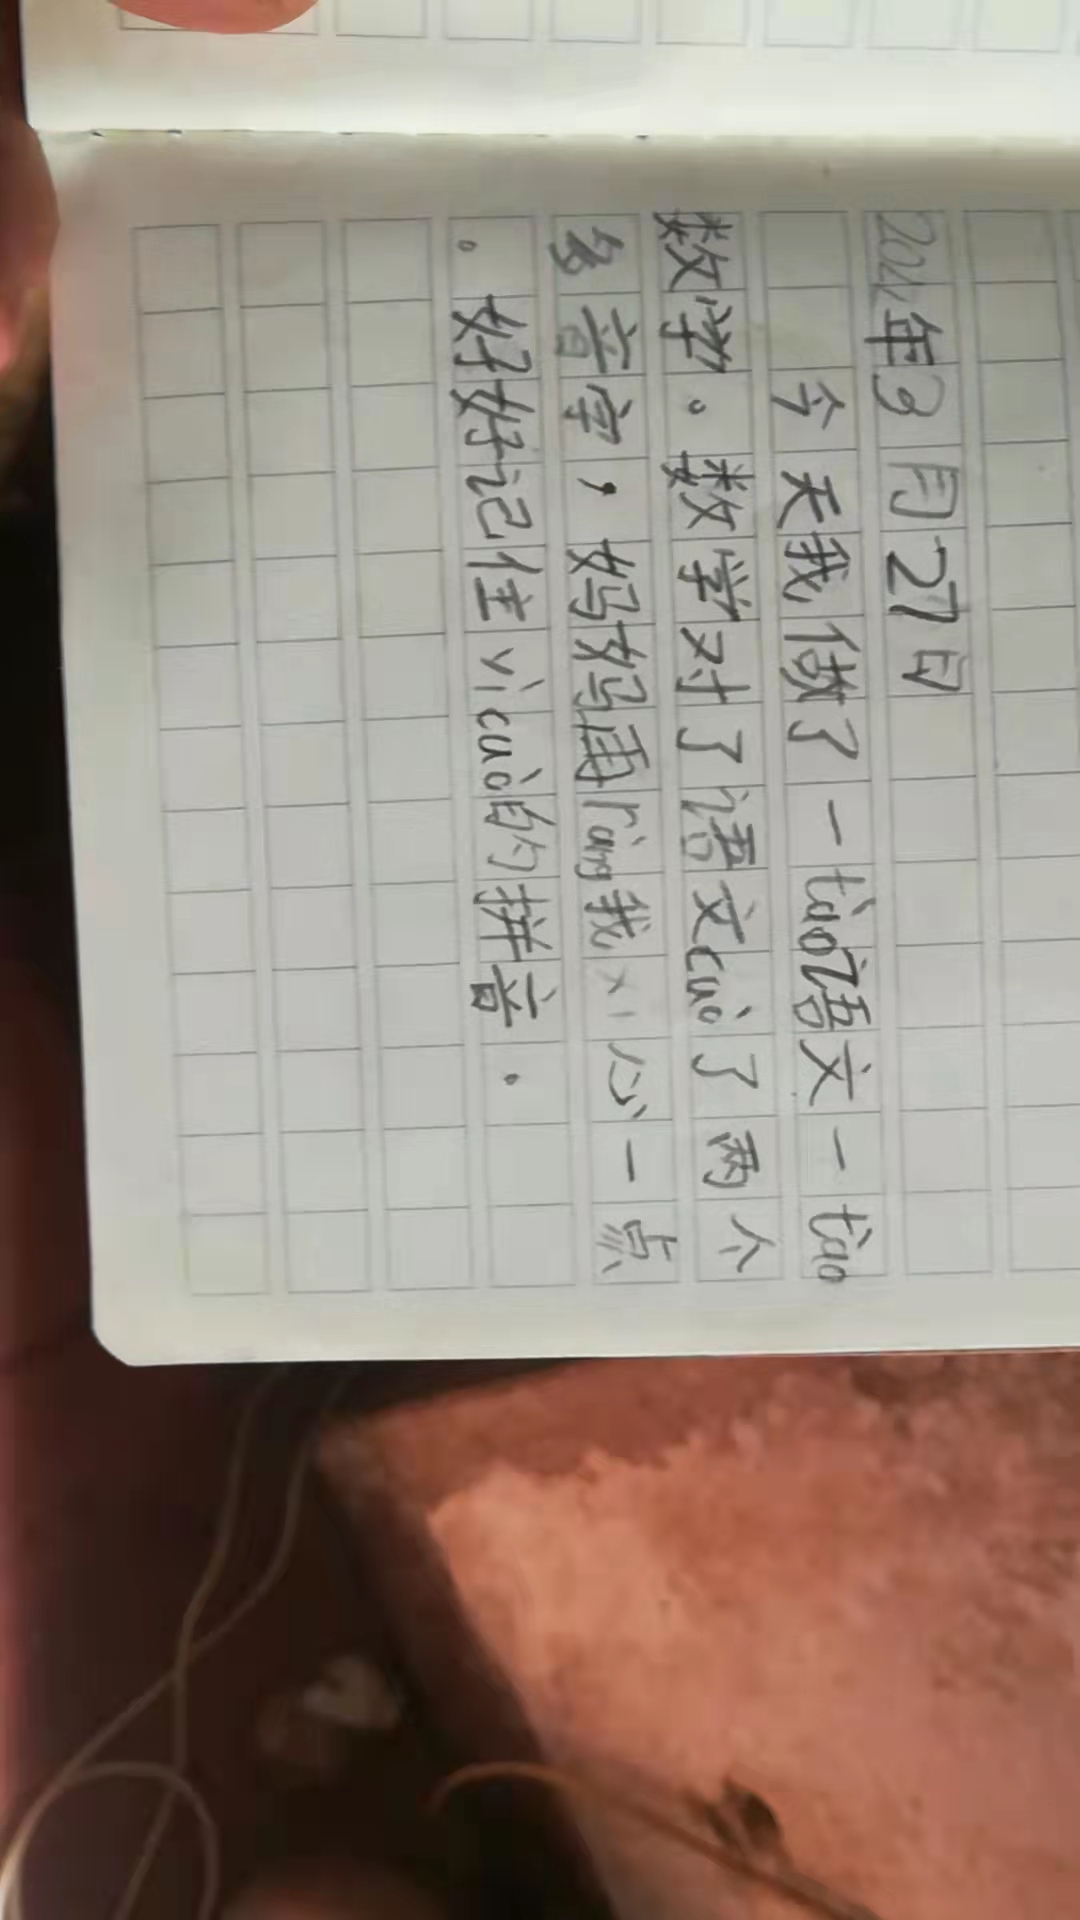 2021年3月27日
今天我做了一tào语文一tào
数学。数学对了语文cuò了两个
多音字，妈妈再ràng我xì心一点
。好好记住yìcuò的拼音.